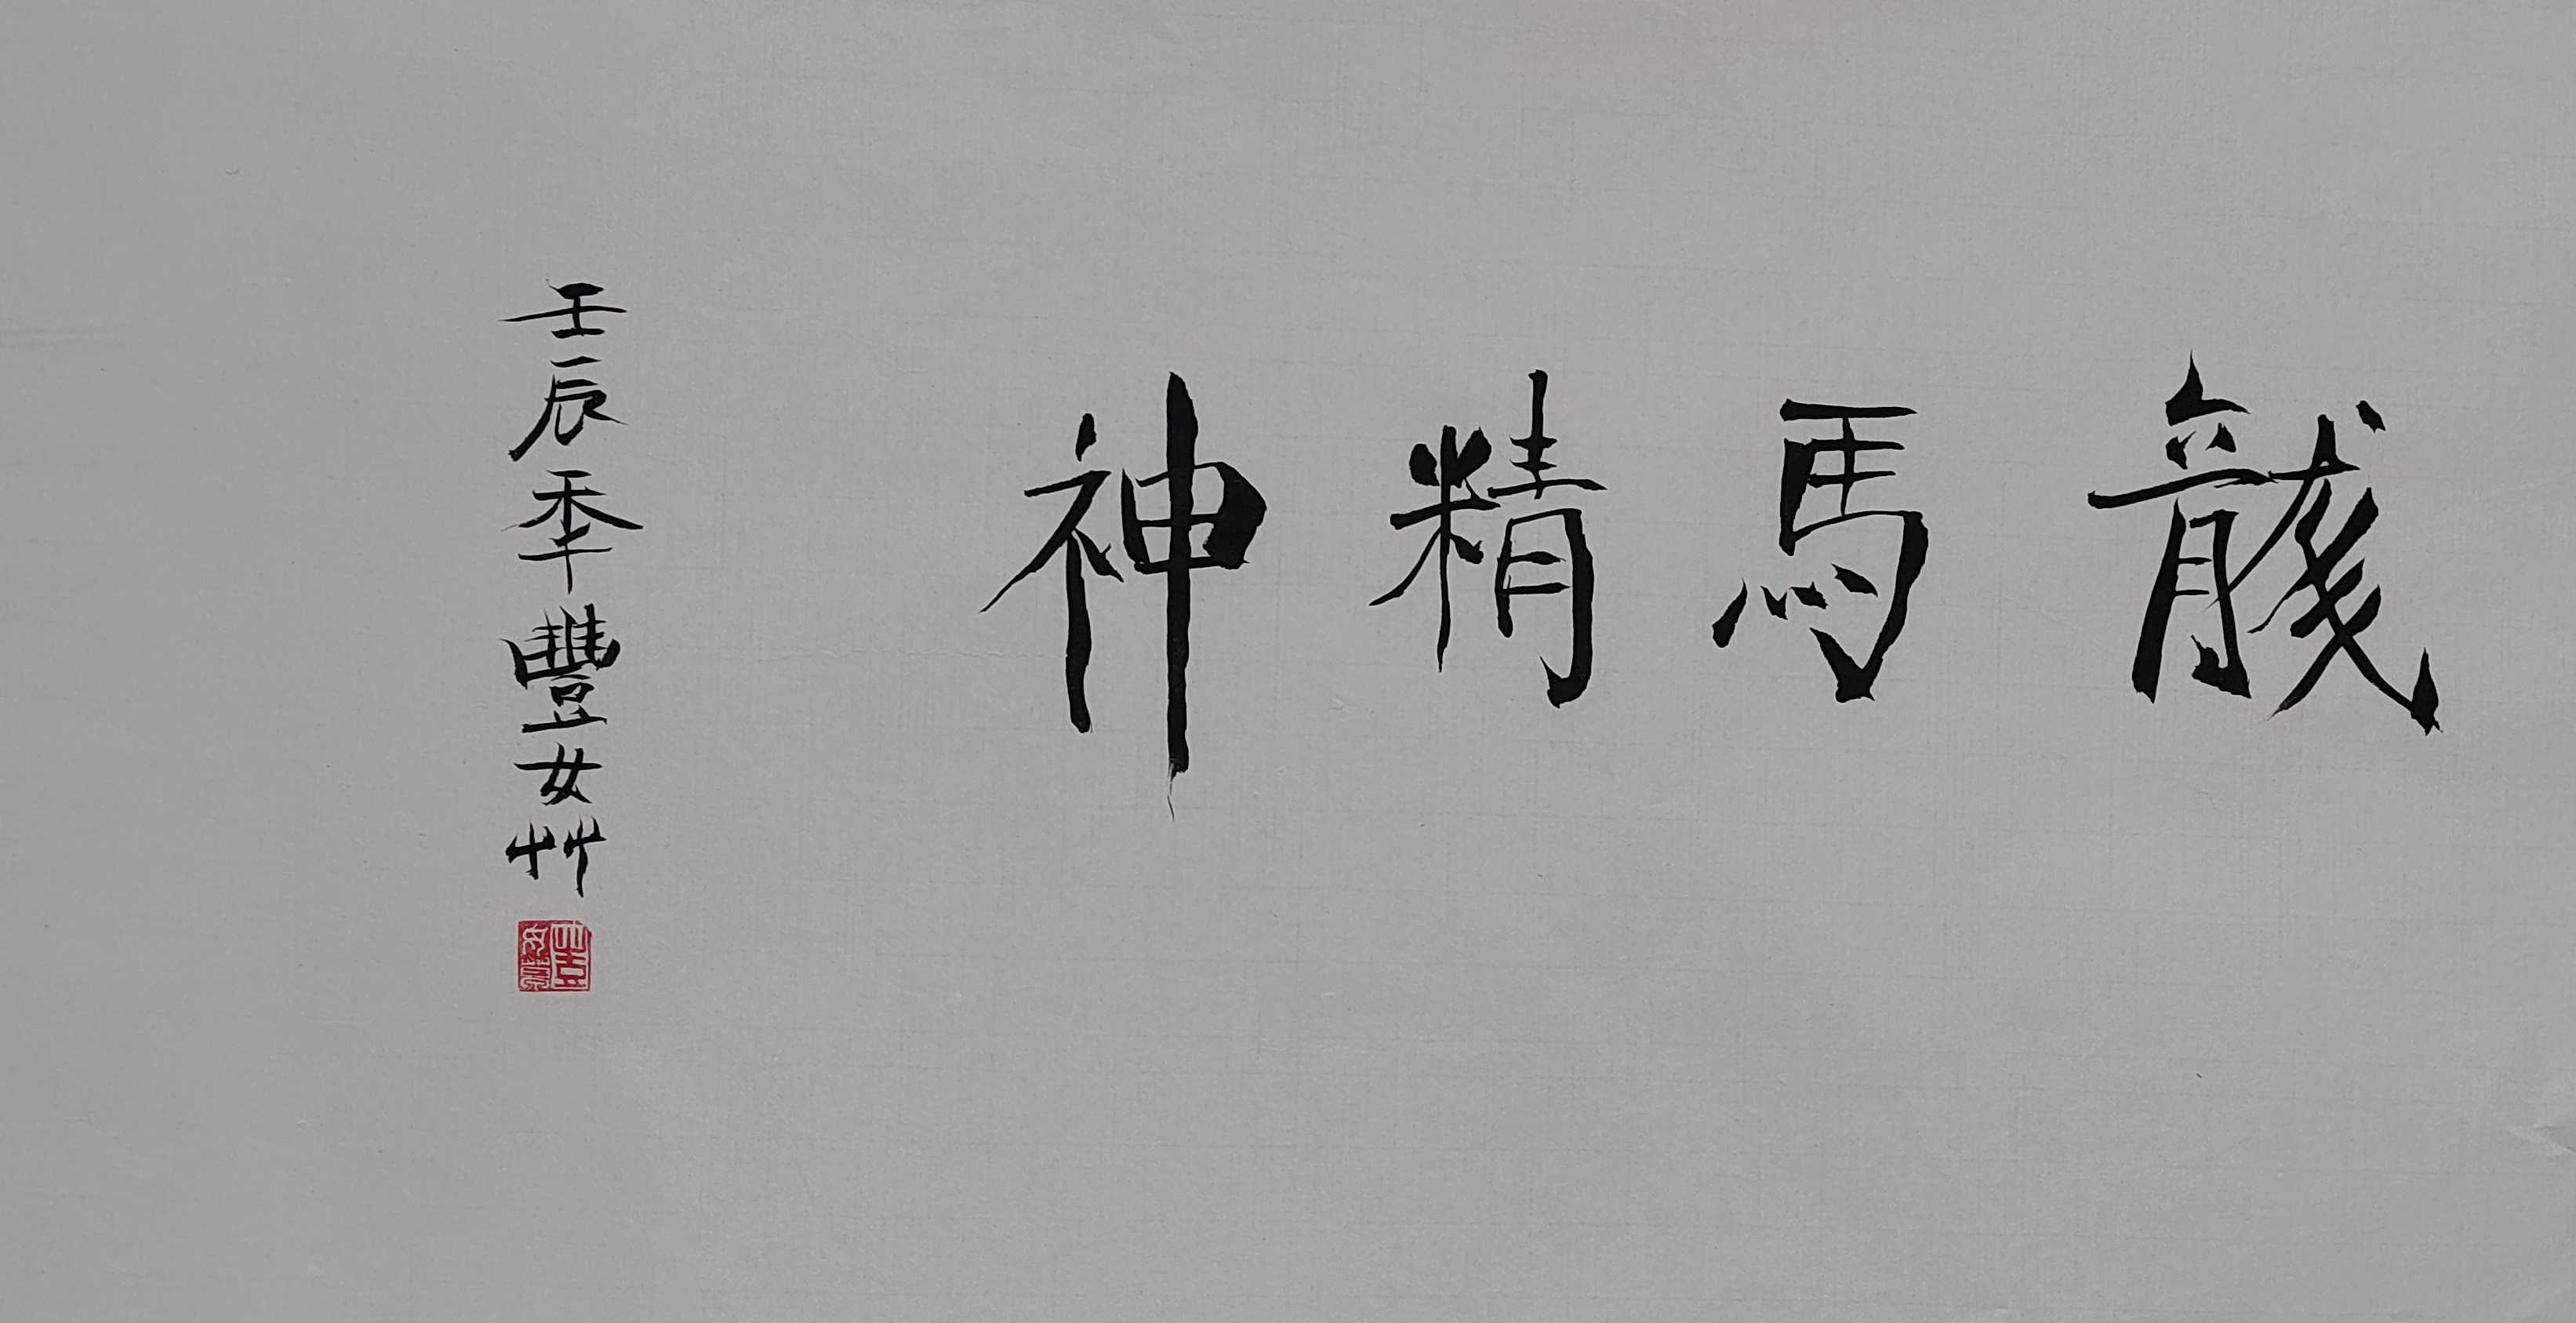 龍馬精神
壬辰年豐女艸